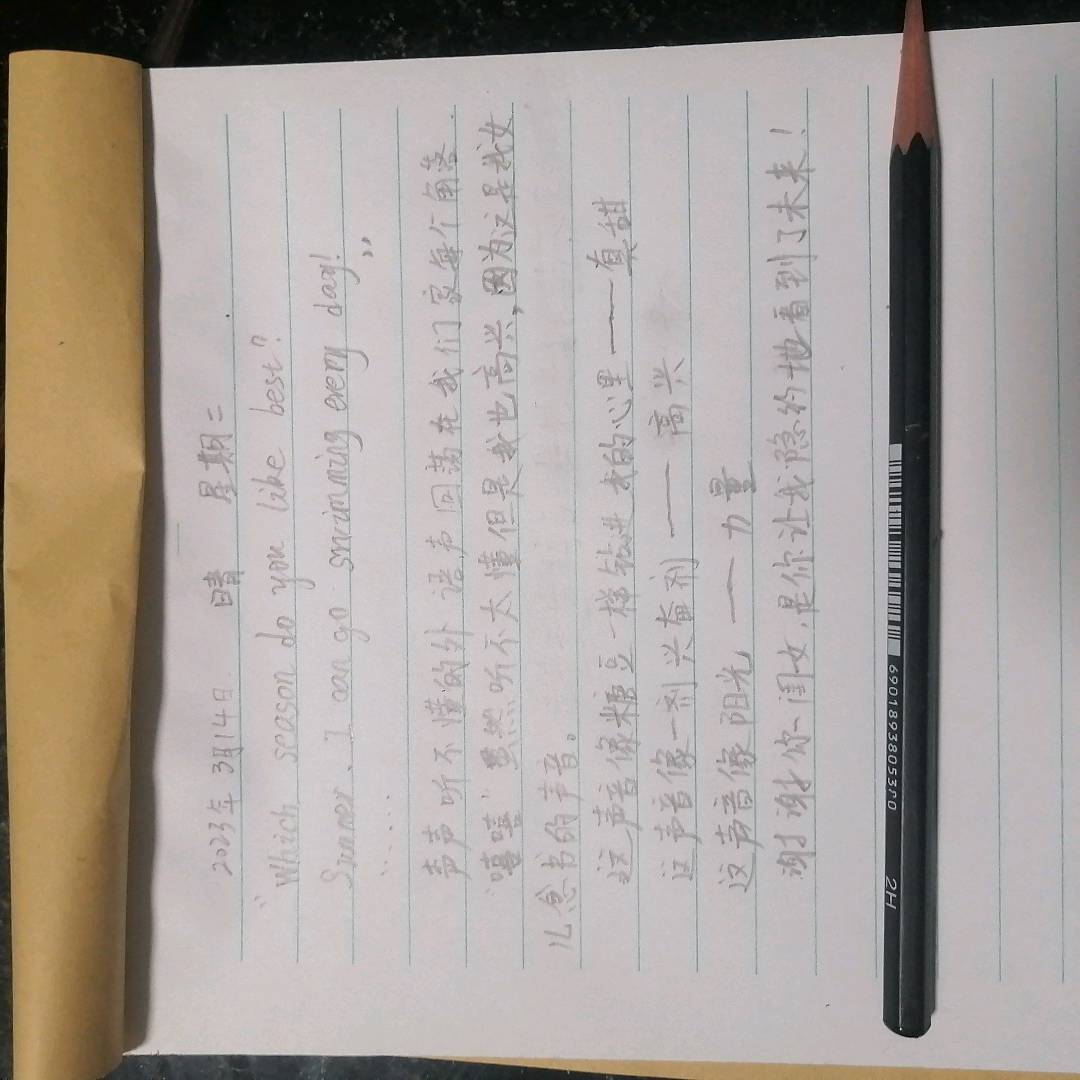 2023年3月14日 晴 星期二
"Which season do you like best?
Summer. I can go swimming every day!
……"
声声听不懂的外语声回荡在我们家每个角落.
"嘻嘻"虽然听不太懂但是我也高兴,因为这是我女
儿念书的声音。
这声音像糖豆一样钻进我的心里——真甜
这声音像一剂兴奋剂——高兴
这声音像阳光——力量
谢谢你~闺女,是你让我隐约地看到了未来!
6901893805300 2H